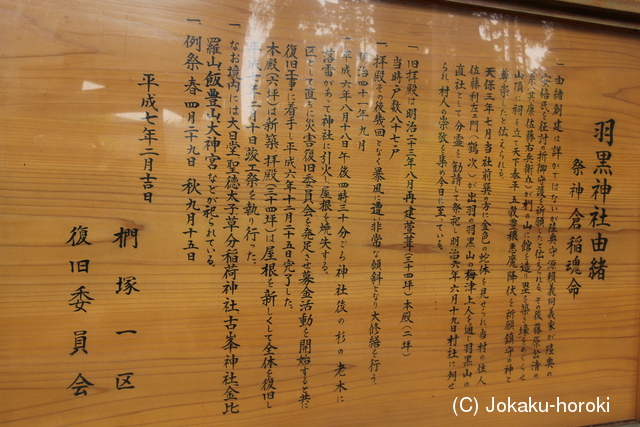 羽黒神社由緒
祭神 倉稲魂命
一 由緒創建は詳かではないが陸奥守源頼義同義家が陸奥の
安倍氏を征討の折御守護を祈願したと伝えられる。その後藤原公清の
佐藤右兵衛 この村の山に館を造り塁を築き壕をめぐらせ
山頂に祠を立て天下泰平五穀豊穣悪魔降伏を祈願鎮守の神と
尊崇したと伝えられる。
天保三年七月当社前異る方に金色の蛇体を見せられ当村の住人
佐藤利左エ門(鶴次)が出羽の羽黒山の梅津上人を通じ羽黒山の
直社として分霊を勧請し祭祀し明治六年六月十九日村社に列せ
られ村人の崇敬を集め今日に至っている。
一 旧拝殿は明治二十三年八月再建萱葺(三十四坪)本殿(二坪)
当時戸数八十七戸
一 拝殿その後幾回となく暴風に遭い非常な傾斜となり大修繕を行う。
明治四十一年九月
一 平成六年八月十八日午後四時三十分ごろ神社後の杉の老木に
落雷があって神社に引火し屋根を焼失する。
区として直ちに災害復旧委員会を発足させ募金活動を開始すると共に
復旧工事に着手し平成六年十二月二十五日完了した。
本殿(六坪)は新築拝殿(三十四坪)は屋根を新しくして全体を復旧し
平成七年二月十日竣工祭を執り行った。
一 なお境内には大日堂聖徳太子草分稲荷神社古峯神社金比
羅山飯豊山大神宮などが祀られている。
一 例祭 春 四月二十九日 秋 九月十五日
平成七年二月吉日
椚塚一区
復旧委員会
(C) Jokaku-horoki